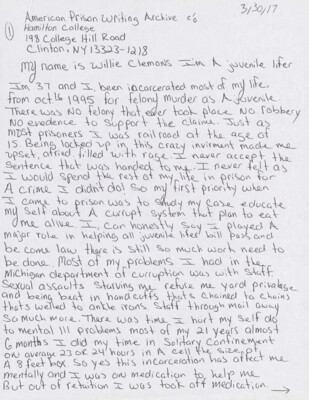 3/30/17
① American Prison Writing Archive c/o
Hamilton College
198 College Hill Road
Clinton, NY 13323-1218
My name is Willie Clemons Im A juvenile lifer
Im 37 and I, been incarcerated most of my life
from oct 16 1995 for felony murder as A juvenile
There was No felony that ever took place No robbery
No evedence to support the claim. Just as
most prisoners I was railroad at the age of
15. Being locked up in this crazy invirment made me
upset, afried filled with rage I never accept the
sentence that was handed to me. I never felt as
I would spend the rest of my life in prison for
A crime I didnt do! So my first priority when
I came to prison was to study my case educate
my self About A currupt system that plan to eat
me alive I, can honestly say I played A
major role in helping all juvenile lifer bill pass, and
be come law there is still so much work need to
be done. Most of my problems I had in the
Michigan department of curruption was with Staff
Sexual assaults Starving me refuse me yard privilege
and being beat in hand cuffs that's chained to chains
thats welled to ankle irons Staff through mail away
So much more. There was time I hurt my self do
to mental ill problems most of my 21 years almost
6 months I did my time in Solitary Continement
on average 23 or 24 hours in A cell the size, of
A 8 feet box. So yes this incarceration has affect me
mentally and I was on medication to help me
But out of retuition I was took off medication. →